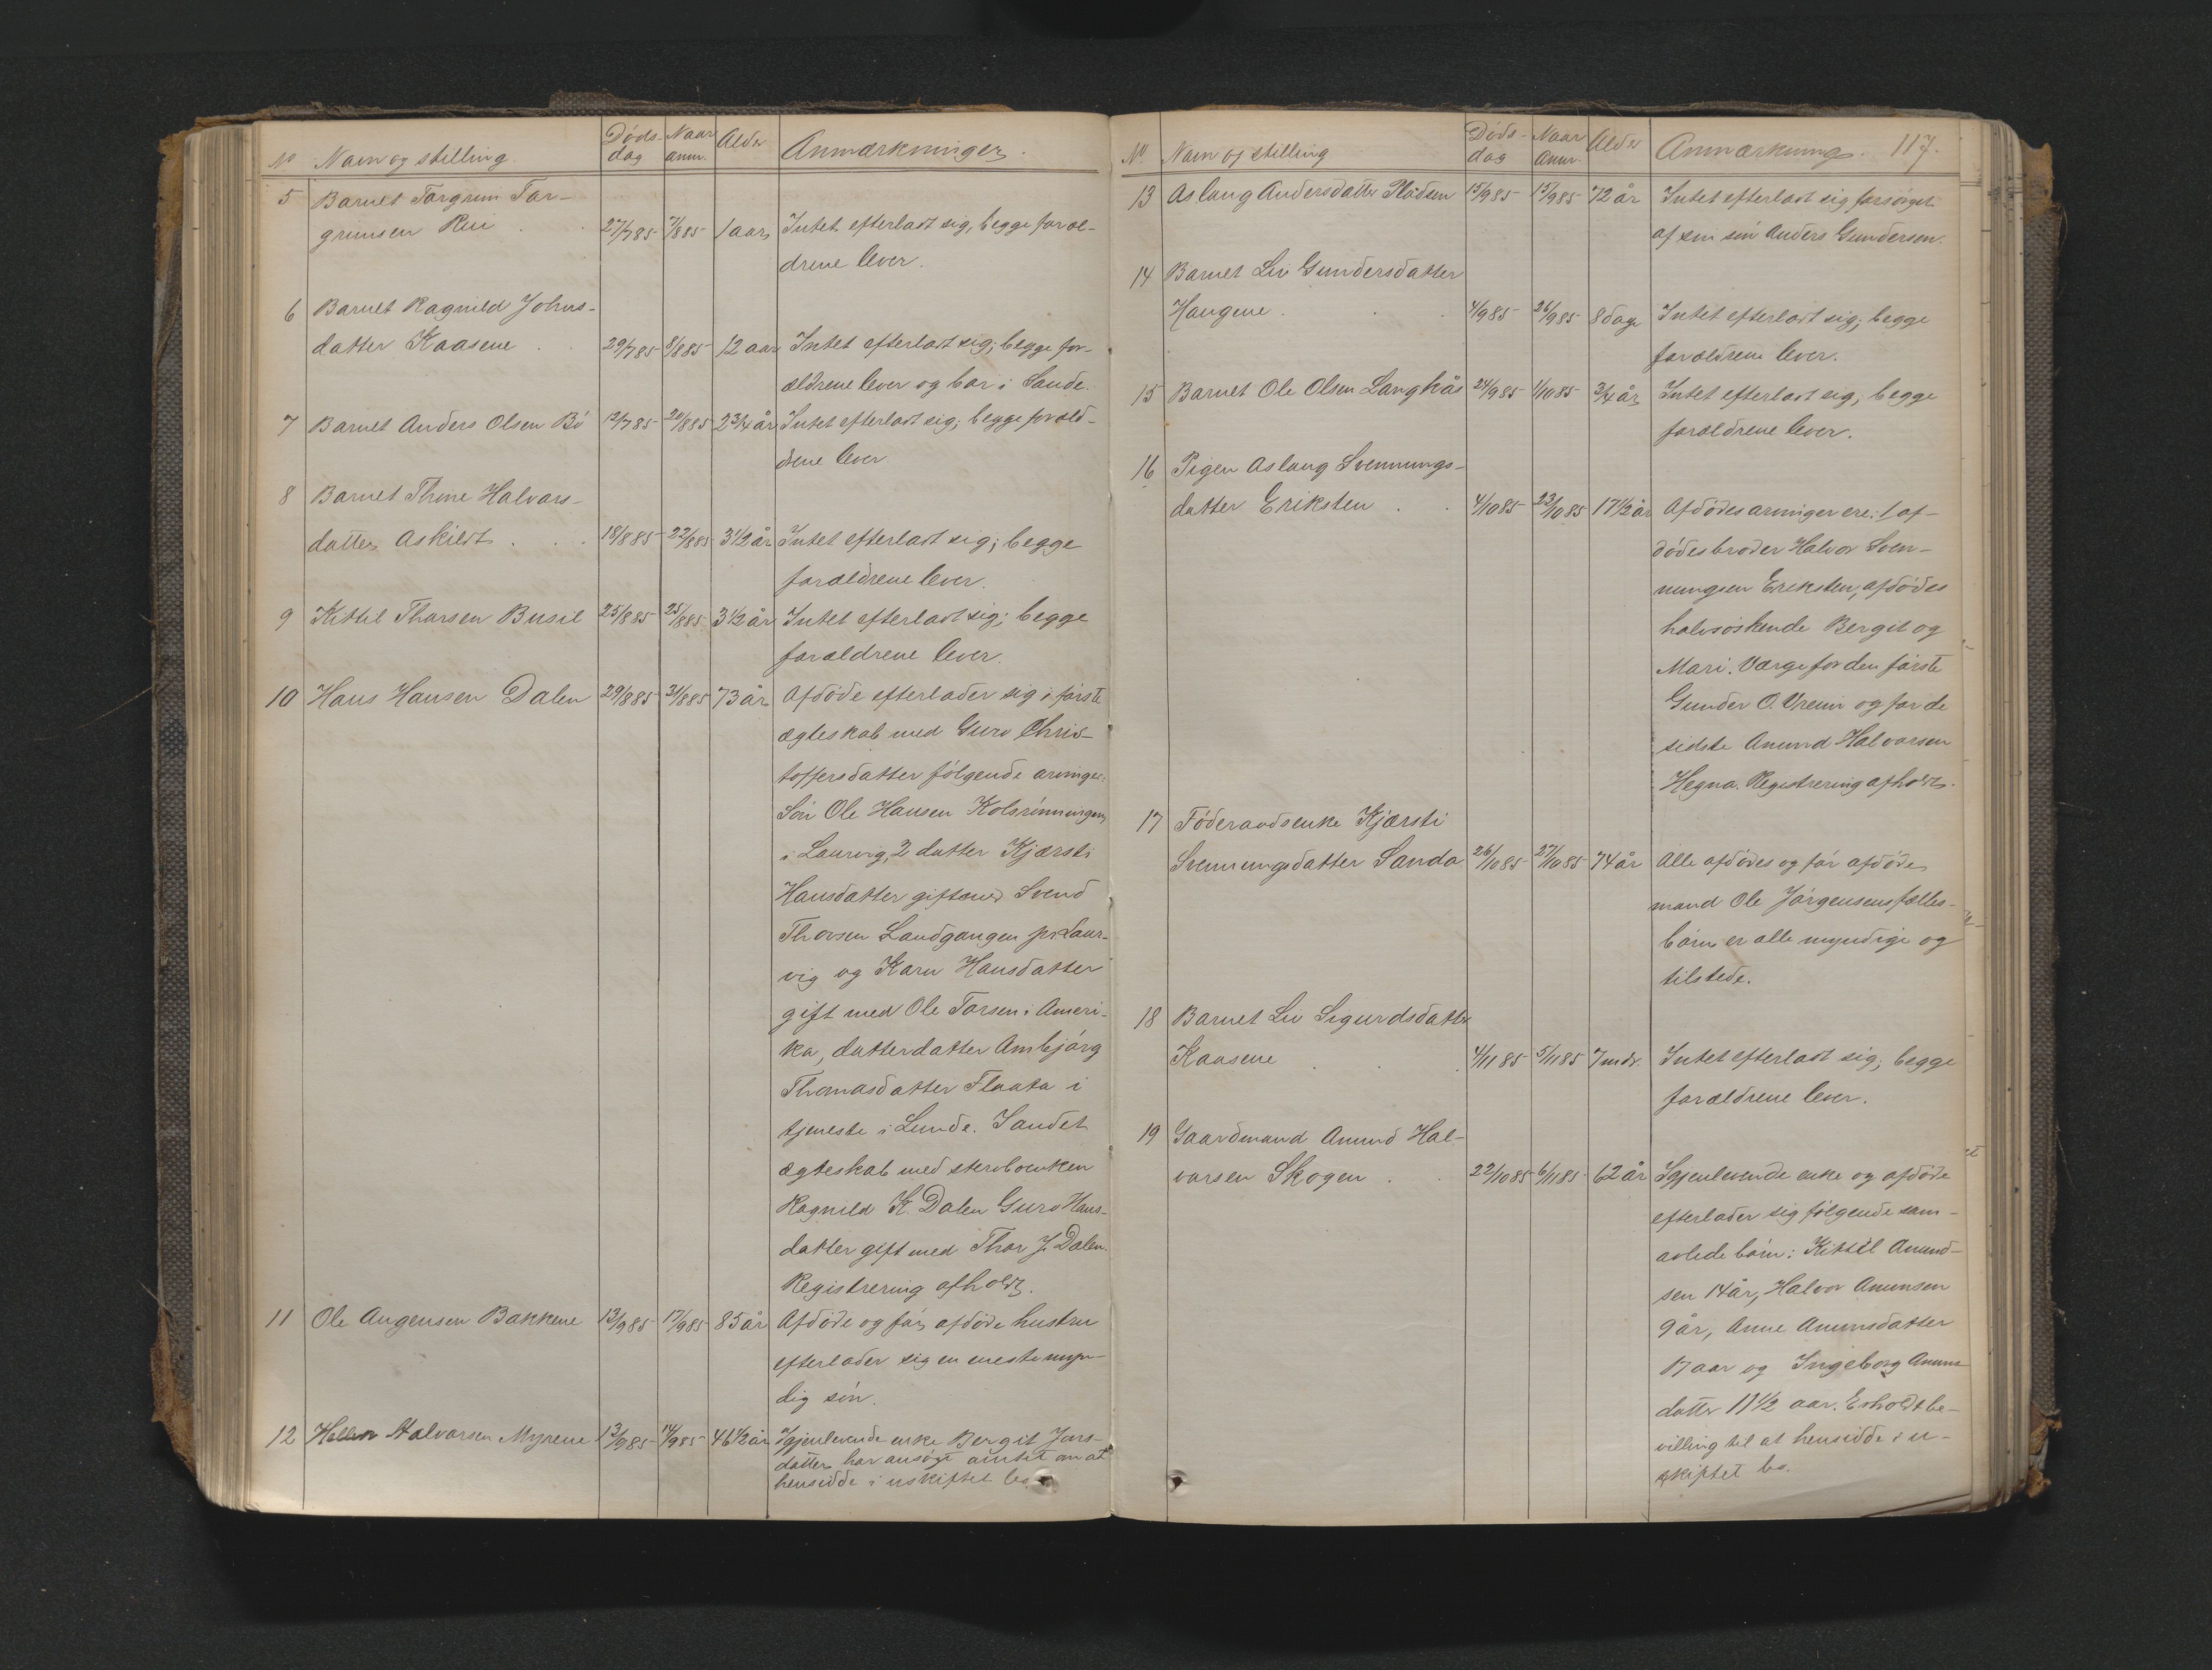 No Navn og stilling Döds- Naar Alder Anmærkninger.
dag anm.
5 Barnet Torgrim Tor-
grimsen Rui . . 27/7 85 7/8 85 1 aar Intet efterladt sig, begge foræl-
drene lever.
6 Barnet Ragnild Johns-
datter Kaasene . . 29/7 85 8/8 85 12 aar Intet efterladt sig; begge for-
ældrene lever og bor i Saude.
7 Barnet Anders Olsen Bö 12/7 85 20/8 85 2 3/4 år Intet efterladt sig; begge foræld-
rene lever
8 Barnet Thine Halvors-
datter Askildt . . . 18/8 85 22/8 85 3 1/2 år Intet efterladt sig; begge
forældrene lever.
9 Kittil Thorsen Busil 25/8 85 25/8 85 3 1/2 år Intet efterladt sig; begge
forældrene lever.
10 Hans Hansen Dalen 29/8 85 31/8 85 73 år Afdöde efterlader sig i förste
ægteskab med Guro Chris-
toffersdatter fölgende arvinger:
Sön Ole Hansen Kolsrönningen
i Laurvig, 2 datter Kjærsti
Hansdatter gift med Svend
Thorsen Landgangen pr Laur-
vig og Karn Hansdatter
gift med Ole Torsen i Ameri-
ka, datterdatter Ambjörg
Thomasdatter Flaata i
tjeneste i Lunde. I andet
ægteskab med sterboenken
Ragnild K. Dalen Guro Hans-
datter gift med Thor J. Dalen.
Registrering afholdt.
11 Ole Augensen Bakkene 13/9 85 17/9 85 85 år Afdöde og för afdöde hustru
efterlader sig en eneste myn-
dig sön.
12 Halvorsen Myrene 13/9 85 14/9 85 46 1/2 år Igjenlevende enke Bergit Jons-
datter har ansögt amtet om at
hensidde i uskiftet bo
No Navn og stilling Döds- Naar Alder Anmærkning. 117.
dag Anm.
13 Aslaug Andersdatter Pladsen 15/9 85 15/9 85 72 år Intet efterladt sig forsörget
af sin sön Anders Gundersen.
14 Barnet Liv Gundersdatter
Haugene . . . 4/9 85 26/9 85 8 dage Intet efterladt sig; begge
forældrene lever.
15 Barnet Ole Olsen Langkås 24/9 85 1/10 85 3/4 år Intet efterladt sig; begge
forældrene lever.
16 Pigen Aslaug Svennungs-
datter Eriksten . . 4/10 85 23/10 85 17 1/2 år Afdödes arvinger ere: 1 af-
dödes broder Halvor Sven-
nungsen Eriksten, afdödes
halvsöskende Bergit og
Mari. Værge for den förste
Gunder O. Vreim og for de
sidste Anund Halvorsen
Hegna. Registrering afholdt.
17 Föderaadsenke Kjærsti
Svennungsdatter Sanda 26/10 85 27/10 85 74 år Alle afdödes og för afdöde
mand Ole Jörgensens fælles-
börn er alle myndige og
tilstede.
18 Barnet Liv Sigurdsdatter
Kaasene . . . 4/11 85 5/11 85 7 mdr. Intet efterladt sig; begge
forældrene lever.
19 Gaardmand Anund Hal-
vorsen Skogen . . 22/10 85 6/11 85 62 år Igjenlevende enke og afdöde
efterlader sig fölgende sam-
avlede börn: Kittil Anund-
sen 14 år, Halvor Anunsen
9 år, Anne Anunsdatter
17 aar og Ingeborg Anuns
datter 11 1/2 aar. Erholdt be-
villing til at hensidde i u-
skiftet bo.